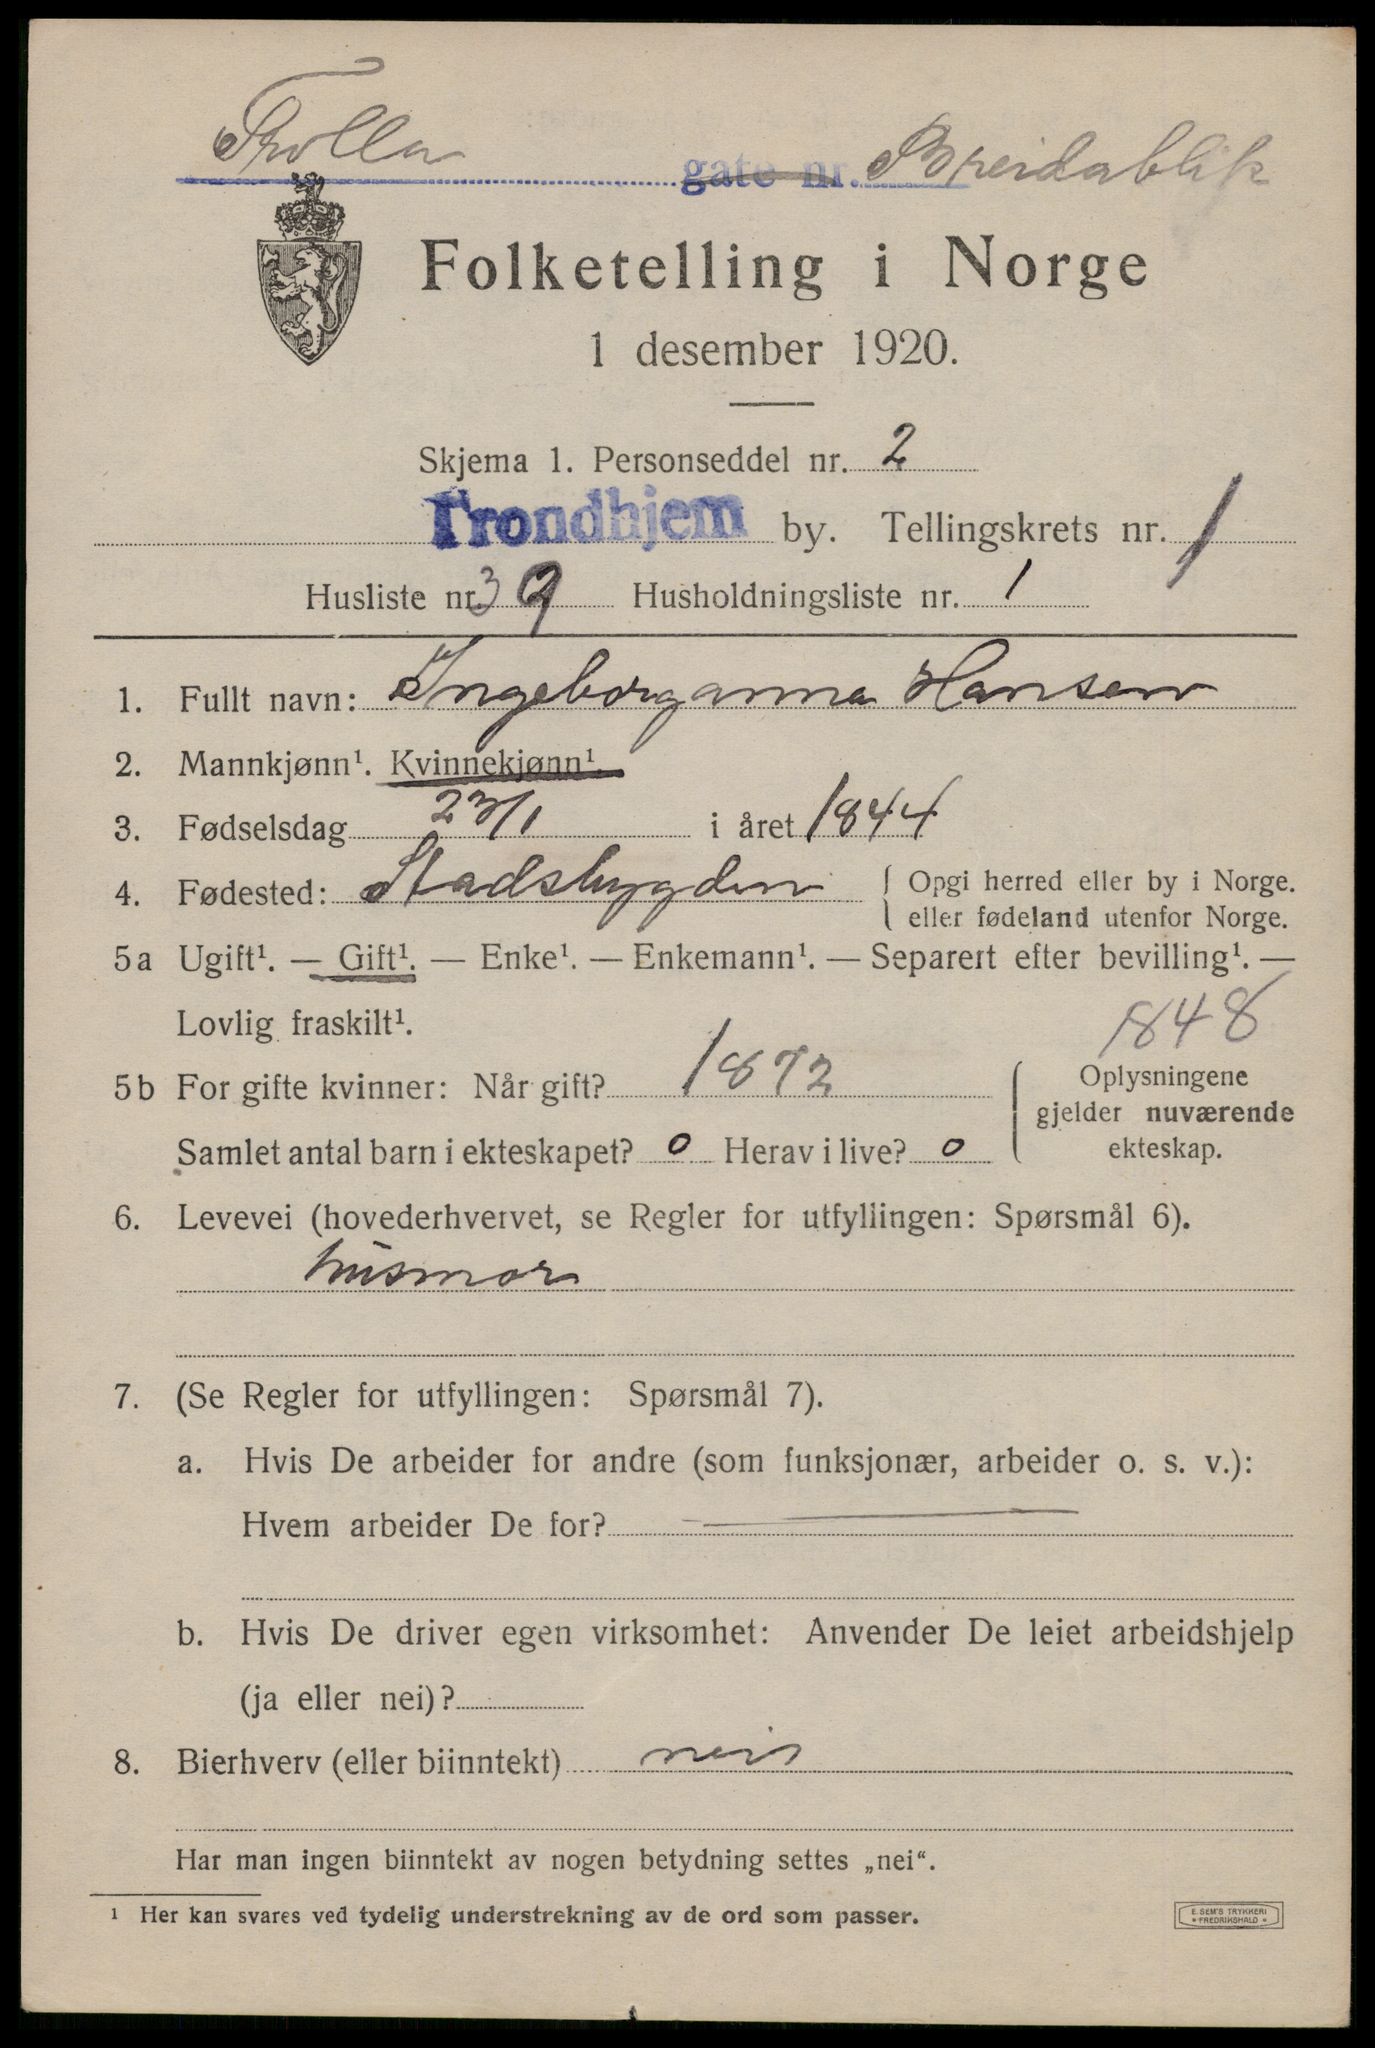 Trolla gate nr. Breidablik
Folketelling i Norge
1 desember 1920.
Skjema 1. Personseddel nr. 2
Trondhjem by. Tellingskrets nr. 1
Husliste nr. 39 Husholdningsliste nr. 1
1. Fullt navn: Ingeborganna Hansen
2. Mannkjønn¹. Kvinnekjønn¹.
3. Fødselsdag 23/1 i året 1844
4. Fødested: Stadsbygden { Opgi herred eller by i Norge.
eller fødeland utenfor Norge.
5a Ugift¹. — Gift¹. — Enke¹. — Enkemann¹. — Separert efter bevilling¹. —
Lovlig fraskilt¹. 1848
5b For gifte kvinner: Når gift? 1872 { Oplysningene
gjelder nuværende
Samlet antal barn i ekteskapet? 0 Herav i live? 0 ekteskap.
6. Levevei (hovederhvervet, se Regler for utfyllingen: Spørsmål 6).
husmor
7. (Se Regler for utfyllingen: Spørsmål 7).
a. Hvis De arbeider for andre (som funksjonær, arbeider o. s. v.):
Hvem arbeider De for? —
b. Hvis De driver egen virksomhet: Anvender De leiet arbeidshjelp
(ja eller nei)?
8. Bierhverv (eller biinntekt) nei
Har man ingen biinntekt av nogen betydning settes „nei“.
¹ Her kan svares ved tydelig understrekning av de ord som passer.
E. SEM'S TRYKKERI
* FREDRIKSHALD *